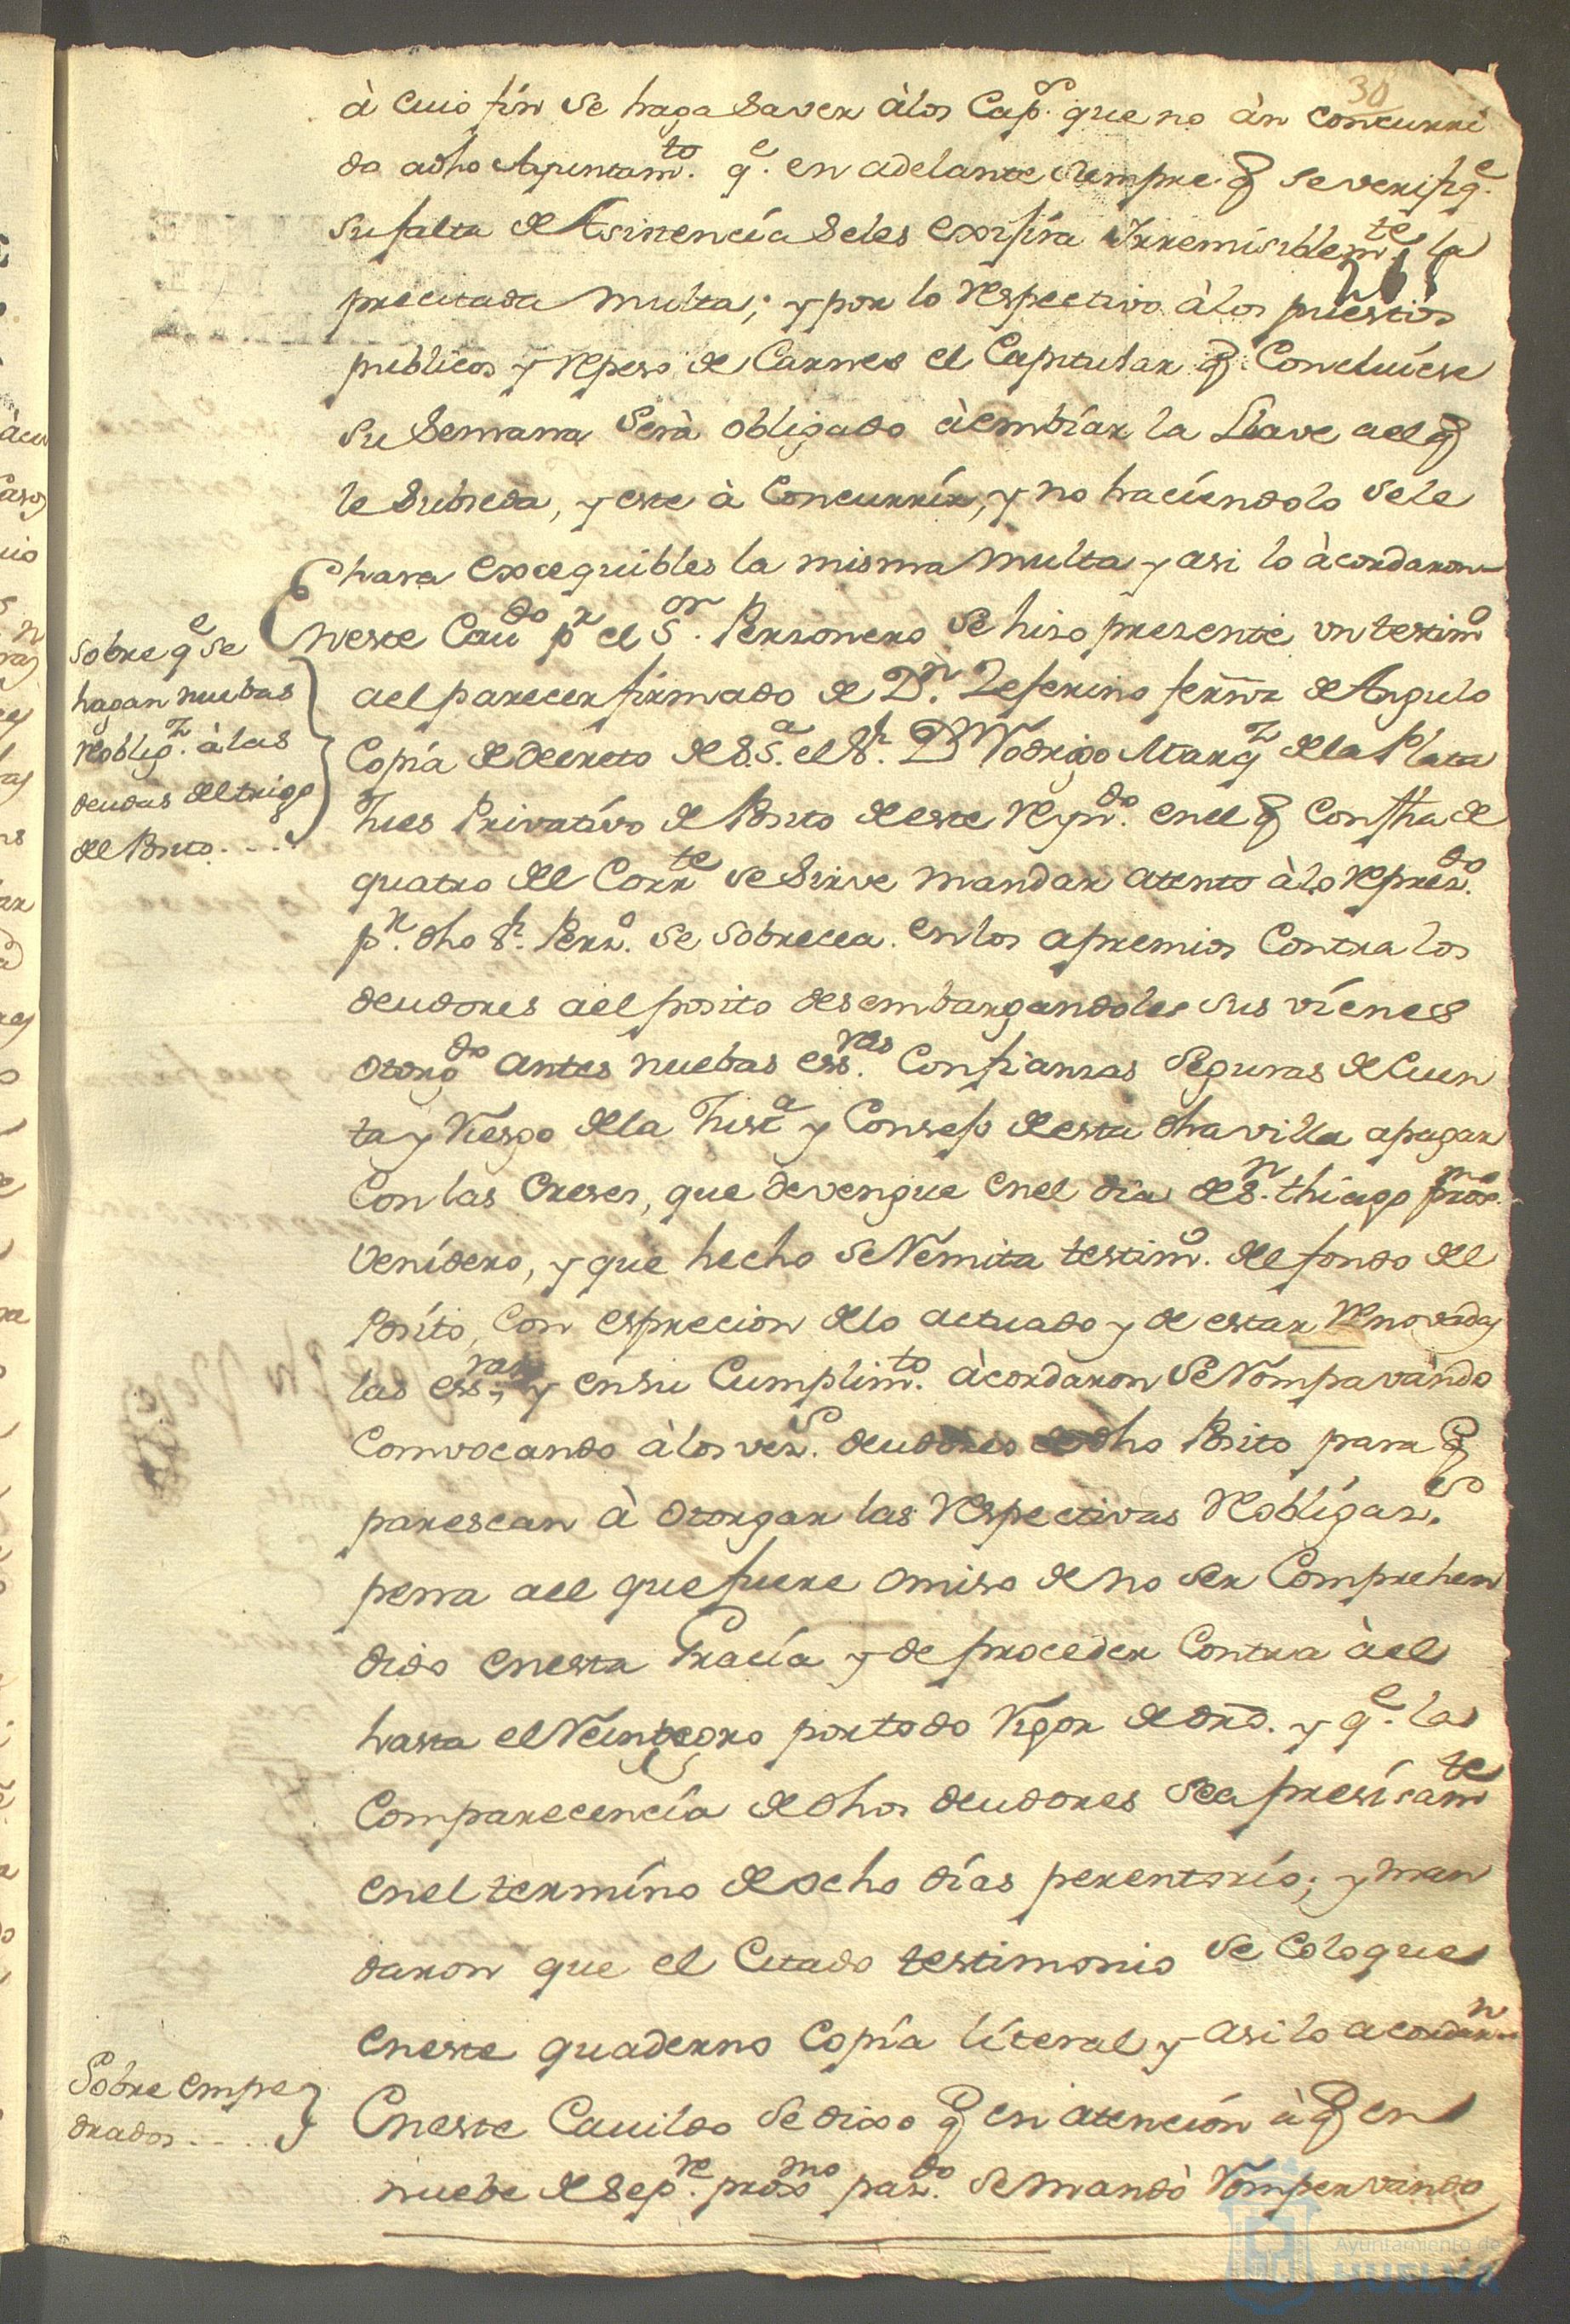 30
à cuio fin se haga saver à los Cap.s que no àn concurri
do a dho Ayuntam.to q.e en adelante siempre q se verifiq.e
su falta de Asistencia se les exijira Irremisiblem.te la
precitada multa; y por lo respectivo à los puestos
publicos y repeso de Carnes el Capitular q. Concluiese
su Semana serà obligado à embiar la Llave a el q
le subceda, y este à Concurrir, y no haciendolo se le
hara exequibles la misma multa y asi lo àcordaron
sobre q.e se
hagan nuebas
reoblig.z à las
deudas del trigo
del Posito
En este Cavdo p.r el S.or Personero se hiso presente un testimo
a el parecer firmado de D.n Zeferino fernz de Angulo
Copia de decreto de S.S.a el S.r D.n Rodrigo Marqz de la Plata
Jues Privativo de Posito de este Reyn.do en el q Con fha de
quatro del Corr.te se sirve mandar atento à lo repres.do
p.r dho S.r Pers.o se sobrecea en los apremios Contra los
deudores a el posito desembargandoles sus vienes
otorg.do antes nuebas ess.ras Con fianzas seguras de Cuen
ta y riesgo de la Just.a y Consejo de esta dha villa a pagar
Con las Creses, que devengue en el dia de S.n thiago prox.mo
venidero, y que hecho se remita testim.o del fondo del
Posito, Con esprecion de lo actuado y de estar renovadas
las ess.ras, y en su Cumplim.to àcordaron se rompa vàndo
Convocando à los vez.s deudores de dho Posito para q
parescan à otorgar las respectivas reobligaz.s
pena a el que fuere omiso de no ser Comprehen
dido en esta Gracia y de proceder Contra àel
hasta el reintegro por todo rigor de dro. y q.e la
Comparecencia de dhos deudores sea presisam.te
en el termino de ocho dias perentorio; y man
daron que el citado testimonio se coloque
en este quaderno Copia literal y asi lo acordar.n
Sobre empe
drados
En este Cavildo se dixo q en atención à q en
nuebe de Sep.re proxmo pas.do se mandò romper vando
Ayuntamiento de
HUELVA